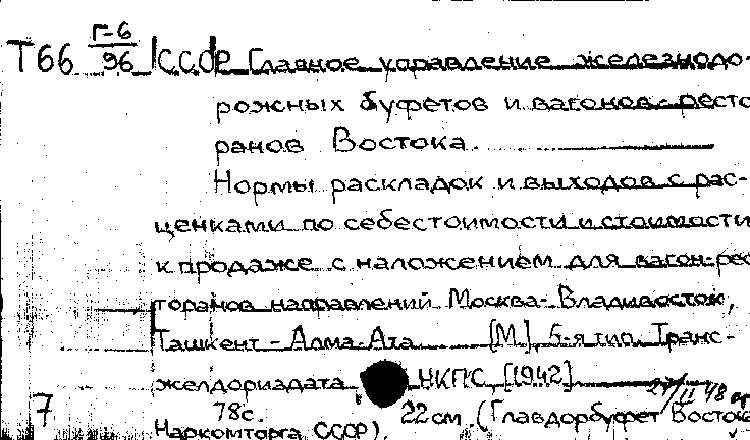 Т66 Г-6/96 СССР Главное управление железнодо-
рожных буфетов и вагонов-ресто
ранов Востока.
Нормы раскладок и выходов с рас-
ценками по себестоимости и стоимости
к продаже с наложением для вагон-рес
торанов направлений Москва-Владивосток,
Ташкент-Алма-Ата [М.], 5-я тип. Транс-
желдориздата НКПС, [1942]
7 78с. 22см. (Главдорбуфет Востока
Наркомторга СССР).